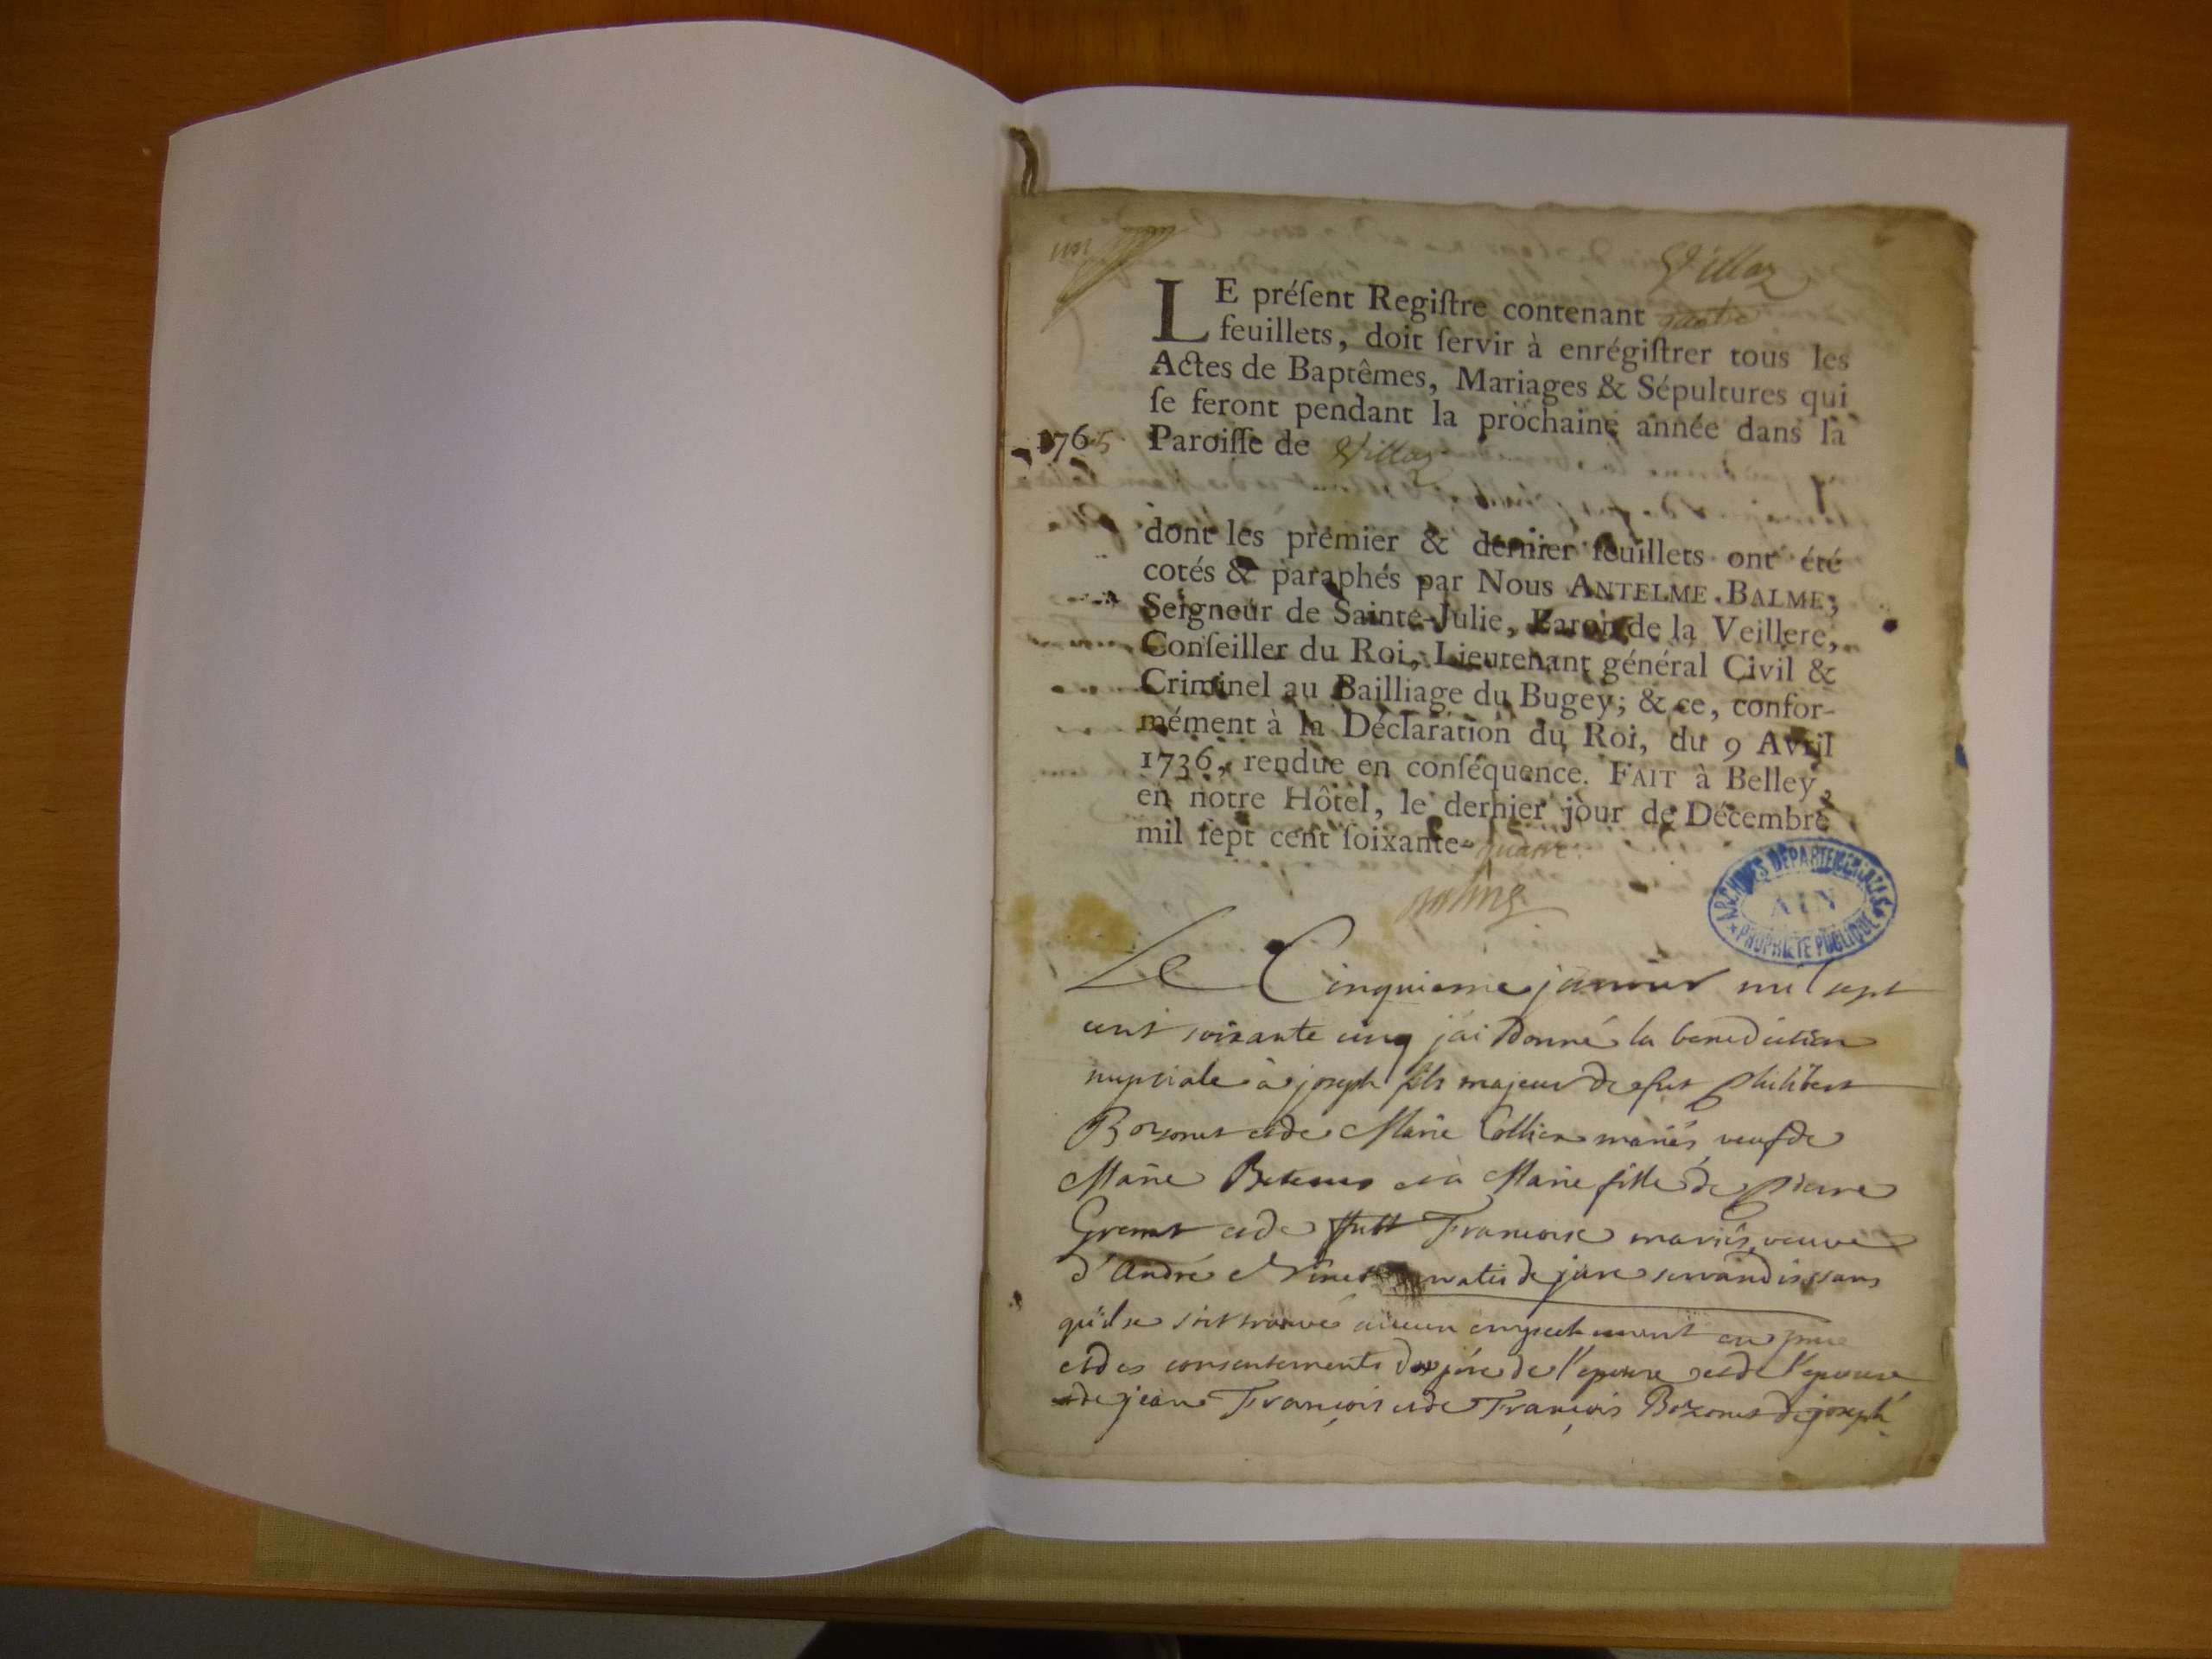 Villaz
LE préſent Regiſtre contenant quatre
feuillets, doit ſervir à enrégiſtrer tous les
Actes de Baptêmes, Mariages & Sépultures qui
ſe feront pendant la prochaine année dans la
1765 Paroiſſe de Villaz
dont les premier & dernier feuillets ont été
cotés & paraphés par Nous ANTELME BALME,
Seigneur de Sainte-Julie, Baron de la Veillere,
Conſeiller du Roi, Lieutenant général Civil &
Criminel au Bailliage du Bugey; & ce, confor-
mément à la Déclaration du Roi, du 9 Avril
1736, rendue en conſéquence. FAIT à Belley,
en notre Hôtel, le dernier jour de Décembre
mil ſept cent ſoixante-quatre.
Balme
ARCHIVES DEPARTEMENTALES
AIN
PROPRIETE PUBLIQUE
Le Cinquieme janvier mil sept
cent soixante cinq j'ai donné la benediction
nuptiale à joseph fils majeur de fut philibert
Bozonet et de Marie Collier mariés, veuf de
Marie et à Marie fille de pierre
et de Francoise mariés, veuve
d'André servatis de jure servandis sans
qu'il se soit trouvé aucun empechement
et des consentements du père de l'epouse et de l'epouse
et de jean François et de François Bozonet de joseph